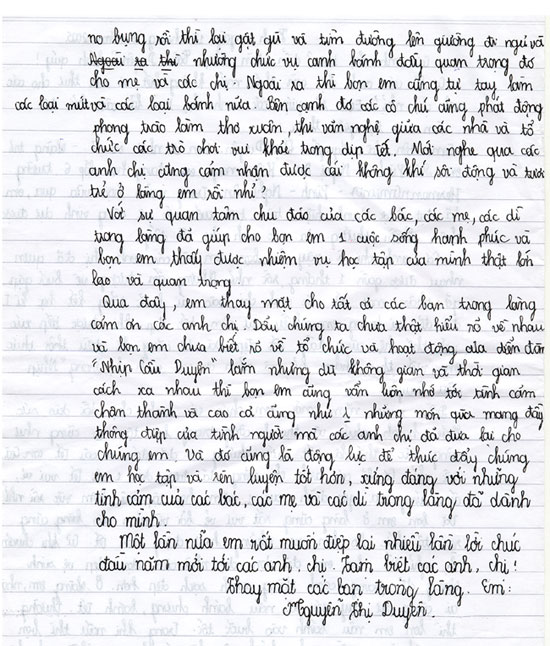 no bụng rồi thì lại gật gù và tìm đường lên giường đi ngủ và
Ngoài ra thì nhường chức vụ canh bánh đầy quan trọng đó
cho mẹ và các chị. Ngoài ra thì bọn em cũng tự tay làm
các loại mứt và các loại bánh nữa. Bên cạnh đó các cô chú cũng phát động
phong trào làm thơ xuân, thi văn nghệ giữa các nhà và tổ
chức các trò chơi vui khỏe trong dịp tết. Mới nghe qua các
anh chị cũng cảm nhận được cái không khí sôi động và tươi
trẻ ở làng em rồi nhỉ?
Với sự quan tâm chu đáo của các bác, các mẹ, các dì
trong làng đã giúp cho bọn em 1 cuộc sống hạnh phúc và
bọn em thấy được nhiệm vụ học tập của mình thật lớn
lao và quan trọng.
Qua đây, em thay mặt cho tất cả các bạn trong làng
cảm ơn các anh chị. Dẫu chúng ta chưa thật hiểu rõ về nhau
và bọn em chưa biết rõ về tổ chức và hoạt động của diễn đàn
"Nhịp Cầu Duyên" lắm nhưng dù không gian và thời gian
cách xa nhau thì bọn em cũng vẫn luôn nhớ tới tình cảm
chân thành và cao cả cũng như 1 những món quà mang đầy
thông điệp của tình người mà các anh chị đã đưa lại cho
chúng em. Và đó cũng là động lực để thúc đẩy chúng
em học tập và rèn luyện tốt hơn, xứng đáng với những
tình cảm của các bác, các mẹ và các dì trong làng đã dành
cho mình.
Một lần nữa em rất muốn điệp lại nhiều lần lời chúc
đầu năm mới tới các anh, chị. Tạm biệt các anh, chị!
Thay mặt các bạn trong làng. Em:
Nguyễn Thị Duyên.